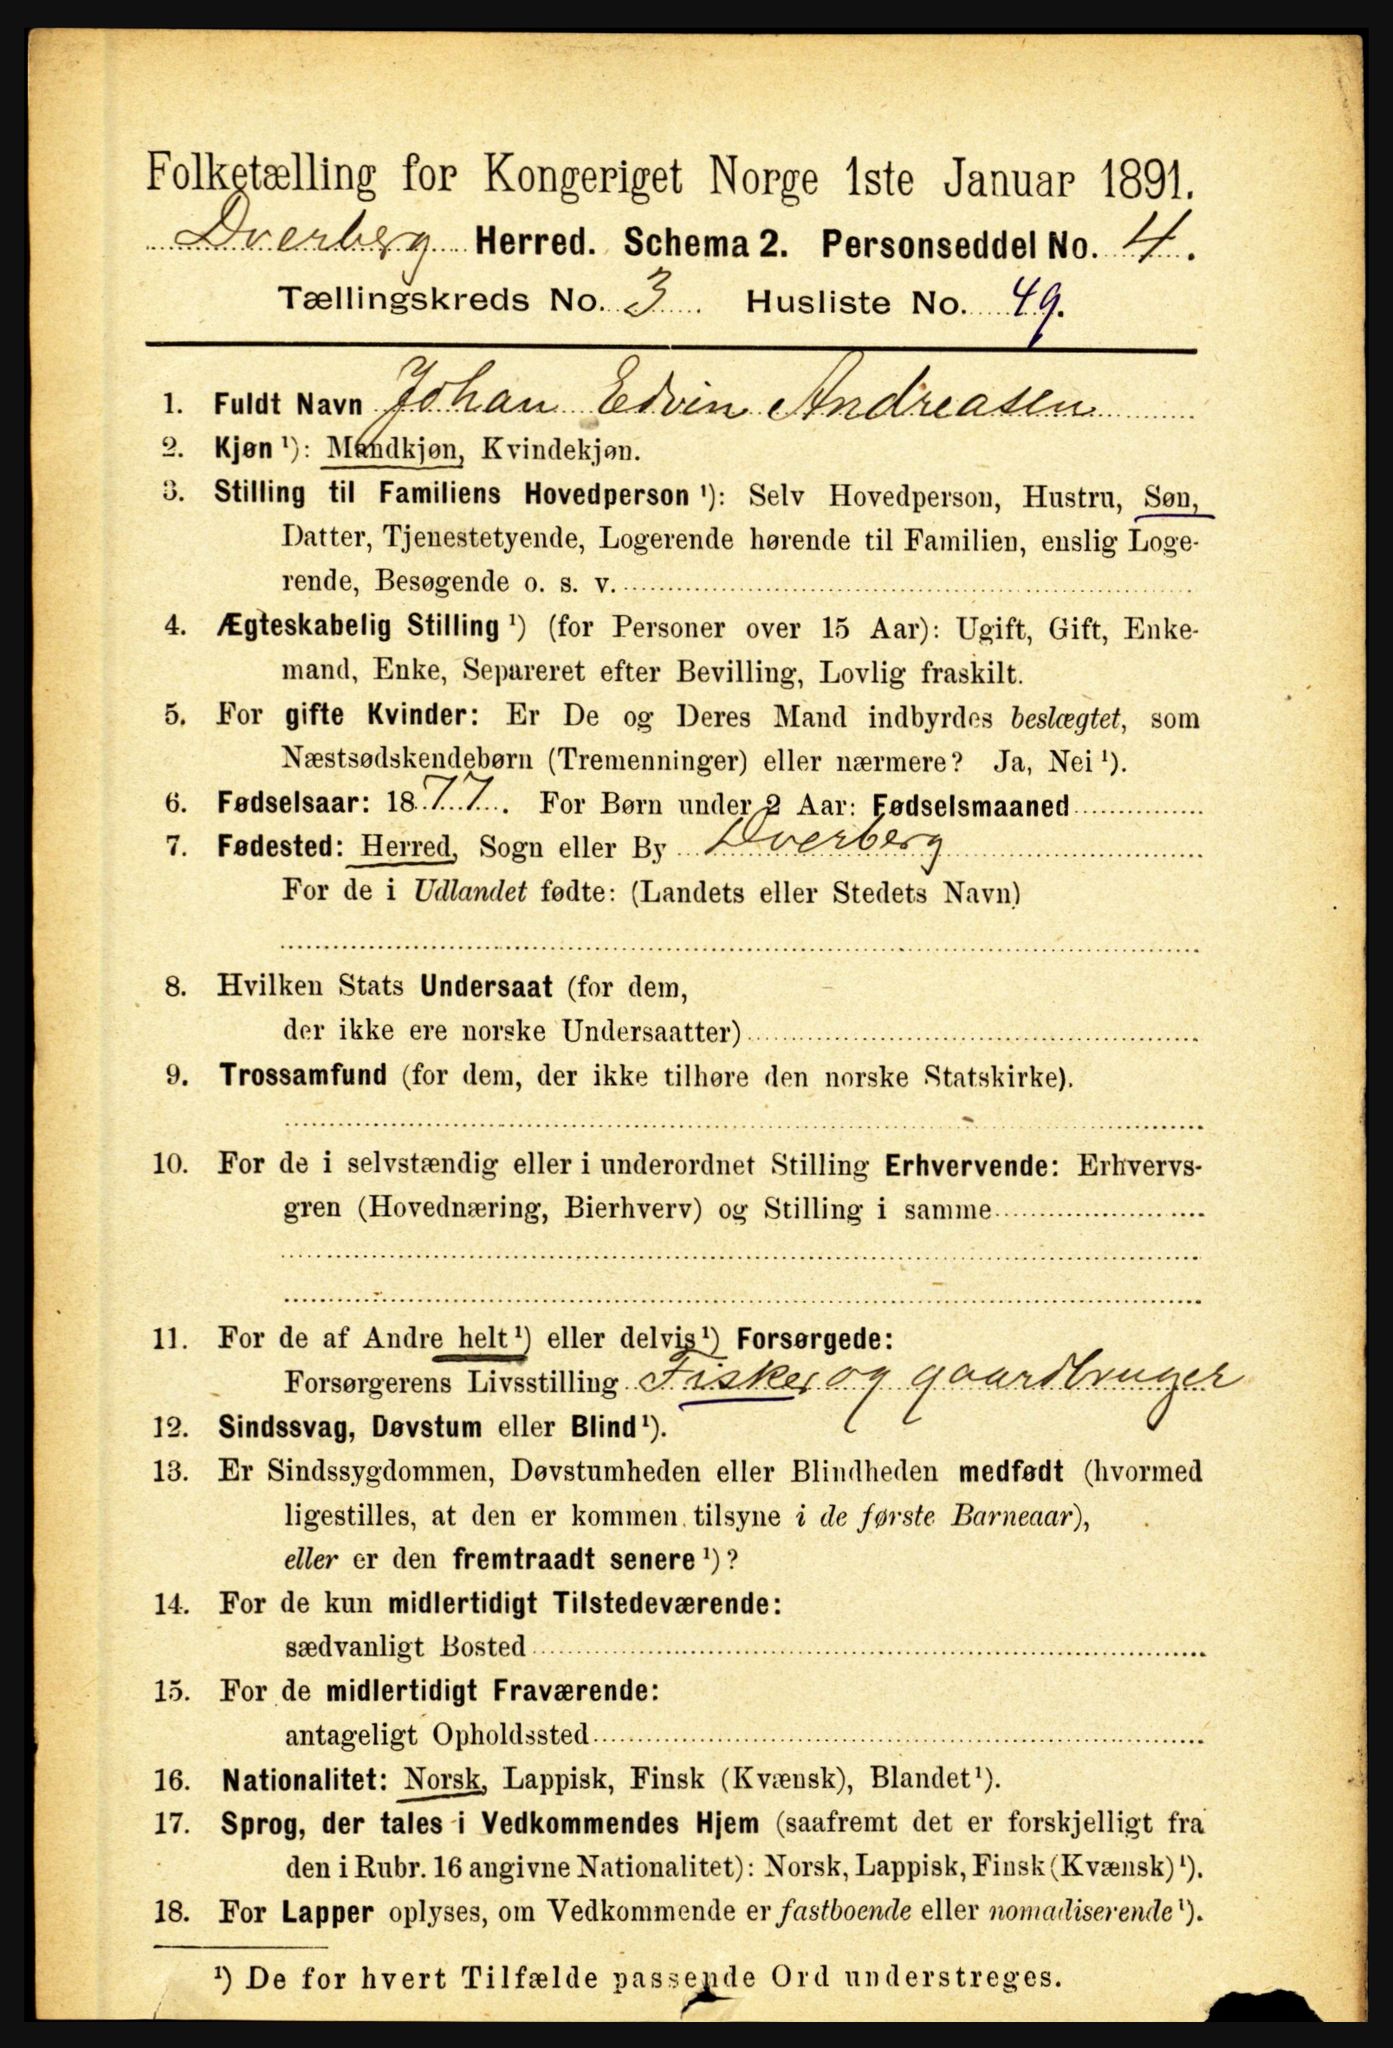 Folketælling for Kongeriget Norge 1ste Januar 1891.
Dverberg Herred. Schema 2. Personseddel No. 4.
Tællingskreds No. 3 Husliste No. 49.
1. Fuldt Navn Johan Edvin Andreasen
2. Kjøn ¹): Mandkjøn, Kvindekjøn.
3. Stilling til Familiens Hovedperson ¹): Selv Hovedperson, Hustru, Søn,
Datter, Tjenestetyende, Logerende hørende til Familien, enslig Loge-
rende, Besøgende o. s. v.
4. Ægteskabelig Stilling ¹) (for Personer over 15 Aar): Ugift, Gift, Enke-
mand, Enke, Separeret efter Bevilling, Lovlig fraskilt.
5. For gifte Kvinder: Er De og Deres Mand indbyrdes beslægtet, som
Næstsødskendebørn (Tremenninger) eller nærmere? Ja, Nei ¹).
6. Fødselsaar: 1877. For Børn under 2 Aar: Fødselsmaaned
7. Fødested: Herred, Sogn eller By Dverberg
For de i Udlandet fødte: (Landets eller Stedets Navn)
8. Hvilken Stats Undersaat (for dem,
der ikke ere norske Undersaatter)
9. Trossamfund (for dem, der ikke tilhøre den norske Statskirke).
10. For de i selvstændig eller i underordnet Stilling Erhvervende: Erhvervs-
gren (Hovednæring, Bierhverv) og Stilling i samme
11. For de af Andre helt ¹) eller delvis ¹) Forsørgede:
Forsørgerens Livsstilling Fisker og gaardbruger
12. Sindssvag, Døvstum eller Blind ¹).
13. Er Sindssygdommen, Døvstumheden eller Blindheden medfødt (hvormed
ligestilles, at den er kommen tilsyne i de første Barneaar),
eller er den fremtraadt senere ¹)?
14. For de kun midlertidigt Tilstedeværende:
sædvanligt Bosted
15. For de midlertidigt Fraværende:
antageligt Opholdssted
16. Nationalitet: Norsk, Lappisk, Finsk (Kvænsk), Blandet ¹).
17. Sprog, der tales i Vedkommendes Hjem (saafremt det er forskjelligt fra
den i Rubr. 16 angivne Nationalitet): Norsk, Lappisk, Finsk (Kvænsk) ¹).
18. For Lapper oplyses, om Vedkommende er fastboende eller nomadiserende ¹).
¹) De for hvert Tilfælde passende Ord understreges.